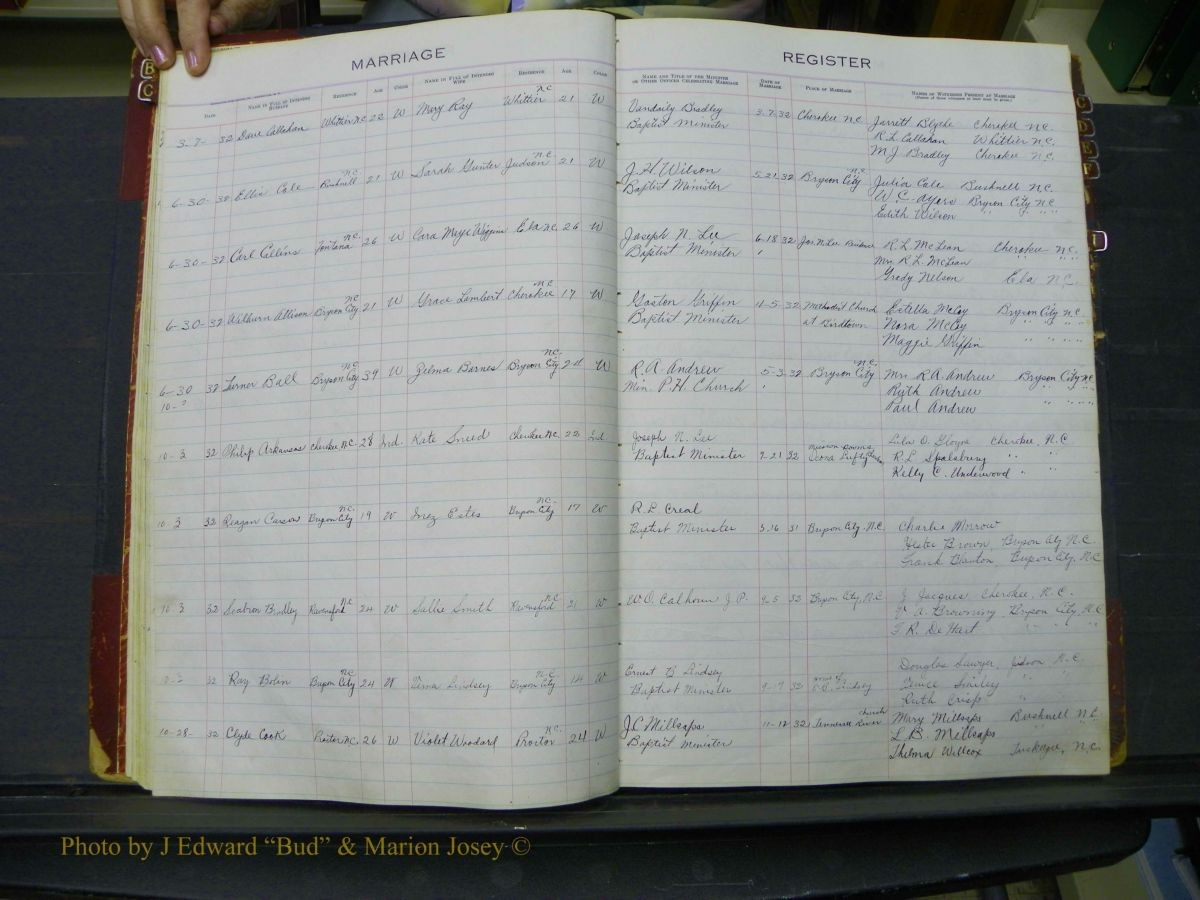 MARRIAGE
REGISTER
DATE NAME IN FULL OF INTENDING HUSBAND RESIDENCE AGE COLOR NAME IN FULL OF INTENDING WIFE RESIDENCE AGE COLOR
NAME AND TITLE OF THE MINISTER OR OTHER OFFICER CELEBRATING MARRIAGE DATE OF MARRIAGE PLACE OF MARRIAGE NAMES OF WITNESSES PRESENT AT MARRIAGE
3-7-32 Dave Callahan Whittier N.C. 22 W Mary Ray Whittier N.C. 21 W
Vandaily Bradley 3-7-32 Cherokee N.C. Jarrett Blythe Cherokee N.C.
Baptist Minister R.L. Callahan Whittier N.C.
M.J. Bradley Cherokee N.C.
6-30-32 Ellis Cole Bushnell N.C. 21 W Sarah Gunter Judson N.C. 21 W
J.H. Wilson 5-21-32 Bryson City N.C. Julia Cole Bushnell N.C.
Baptist Minister W.C. Ayers Bryson City N.C.
Edith Wilson " " " "
6-30-32 Carl Collins Fontana N.C. 26 W Cora Maye Wiggins Ela N.C. 26 W
Joseph N. Lee 6-18-32 Jos. N. Lee R.L. McLean Cherokee N.C.
Baptist Minister Mrs R.L. McLean
Grady Nelson Ela N.C.
6-30-32 Welburn Allison Bryson City N.C. 21 W Grace Lambert Cherokee N.C. 17 W
Gaston Griffin 11-5-32 Methodist Church Estella McCoy Bryson City N.C.
Baptist Minister at Birdtown Nora McCoy " " " "
Maggie Griffin " " " "
6-30 32 Turner Ball Bryson City N.C. 39 W Zelma Barnes Bryson City N.C. 24 W
10-3
R.A. Andrew 5-3-32 Bryson City N.C. Mrs R.A. Andrew Bryson City N.C.
Min. P.H. Church Ruth Andrew
Paul Andrew " " " "
10-3 32 Philip Arkansas Cherokee, N.C. 28 Ind. Kate Sneed Cherokee N.C. 22 Ind
Joseph N. Lee Lula O. Gloyne Cherokee, N.C.
Baptist Minister 9-21 32 R.L. Spalsbury " "
Kelly C. Underwood " "
10-3 32 Reagan Carson Bryson City N.C. 19 W Inez Estes Bryson City N.C. 17 W
R.L. Creal
Baptist Minister 5-16 31 Bryson City, N.C. Charlie Morrow
Hester Brown, Bryson City N.C.
Frank Blanton, Bryson City, N.C.
10-3 32 Seabron Bradley Ravensford N.C. 24 W Sallie Smith Ravensford N.C. 21 W
W.O. Calhoun J.P. 9-5 32 Bryson City, N.C. J. Jacques Cherokee, N.C.
A. Browning Bryson City N.C.
T.R. DeHart " " "
10-3 32 Ray Bolen Bryson City N.C. 24 W Verna Lindsey Bryson City N.C. 18 W
Ernest B Lindsey Douglas Sawyer, Judson N.C.
Baptist Minister 9-17 32 Lindsey Smiley "
Ruth Crisp "
10-28-32 Clyde Cook Proctor N.C. 26 W Violet Woodard Proctor N.C. 24 W
J.C. Millsaps 11-12 32 Tennessee River church Mary Millsaps Bushnell N.C.
Baptist Minister L.B. Millsaps " "
Thelma Willcox Tuskegee, N.C.
B
C
C
D
E
F
Photo by J Edward “Bud” & Marion Josey ©